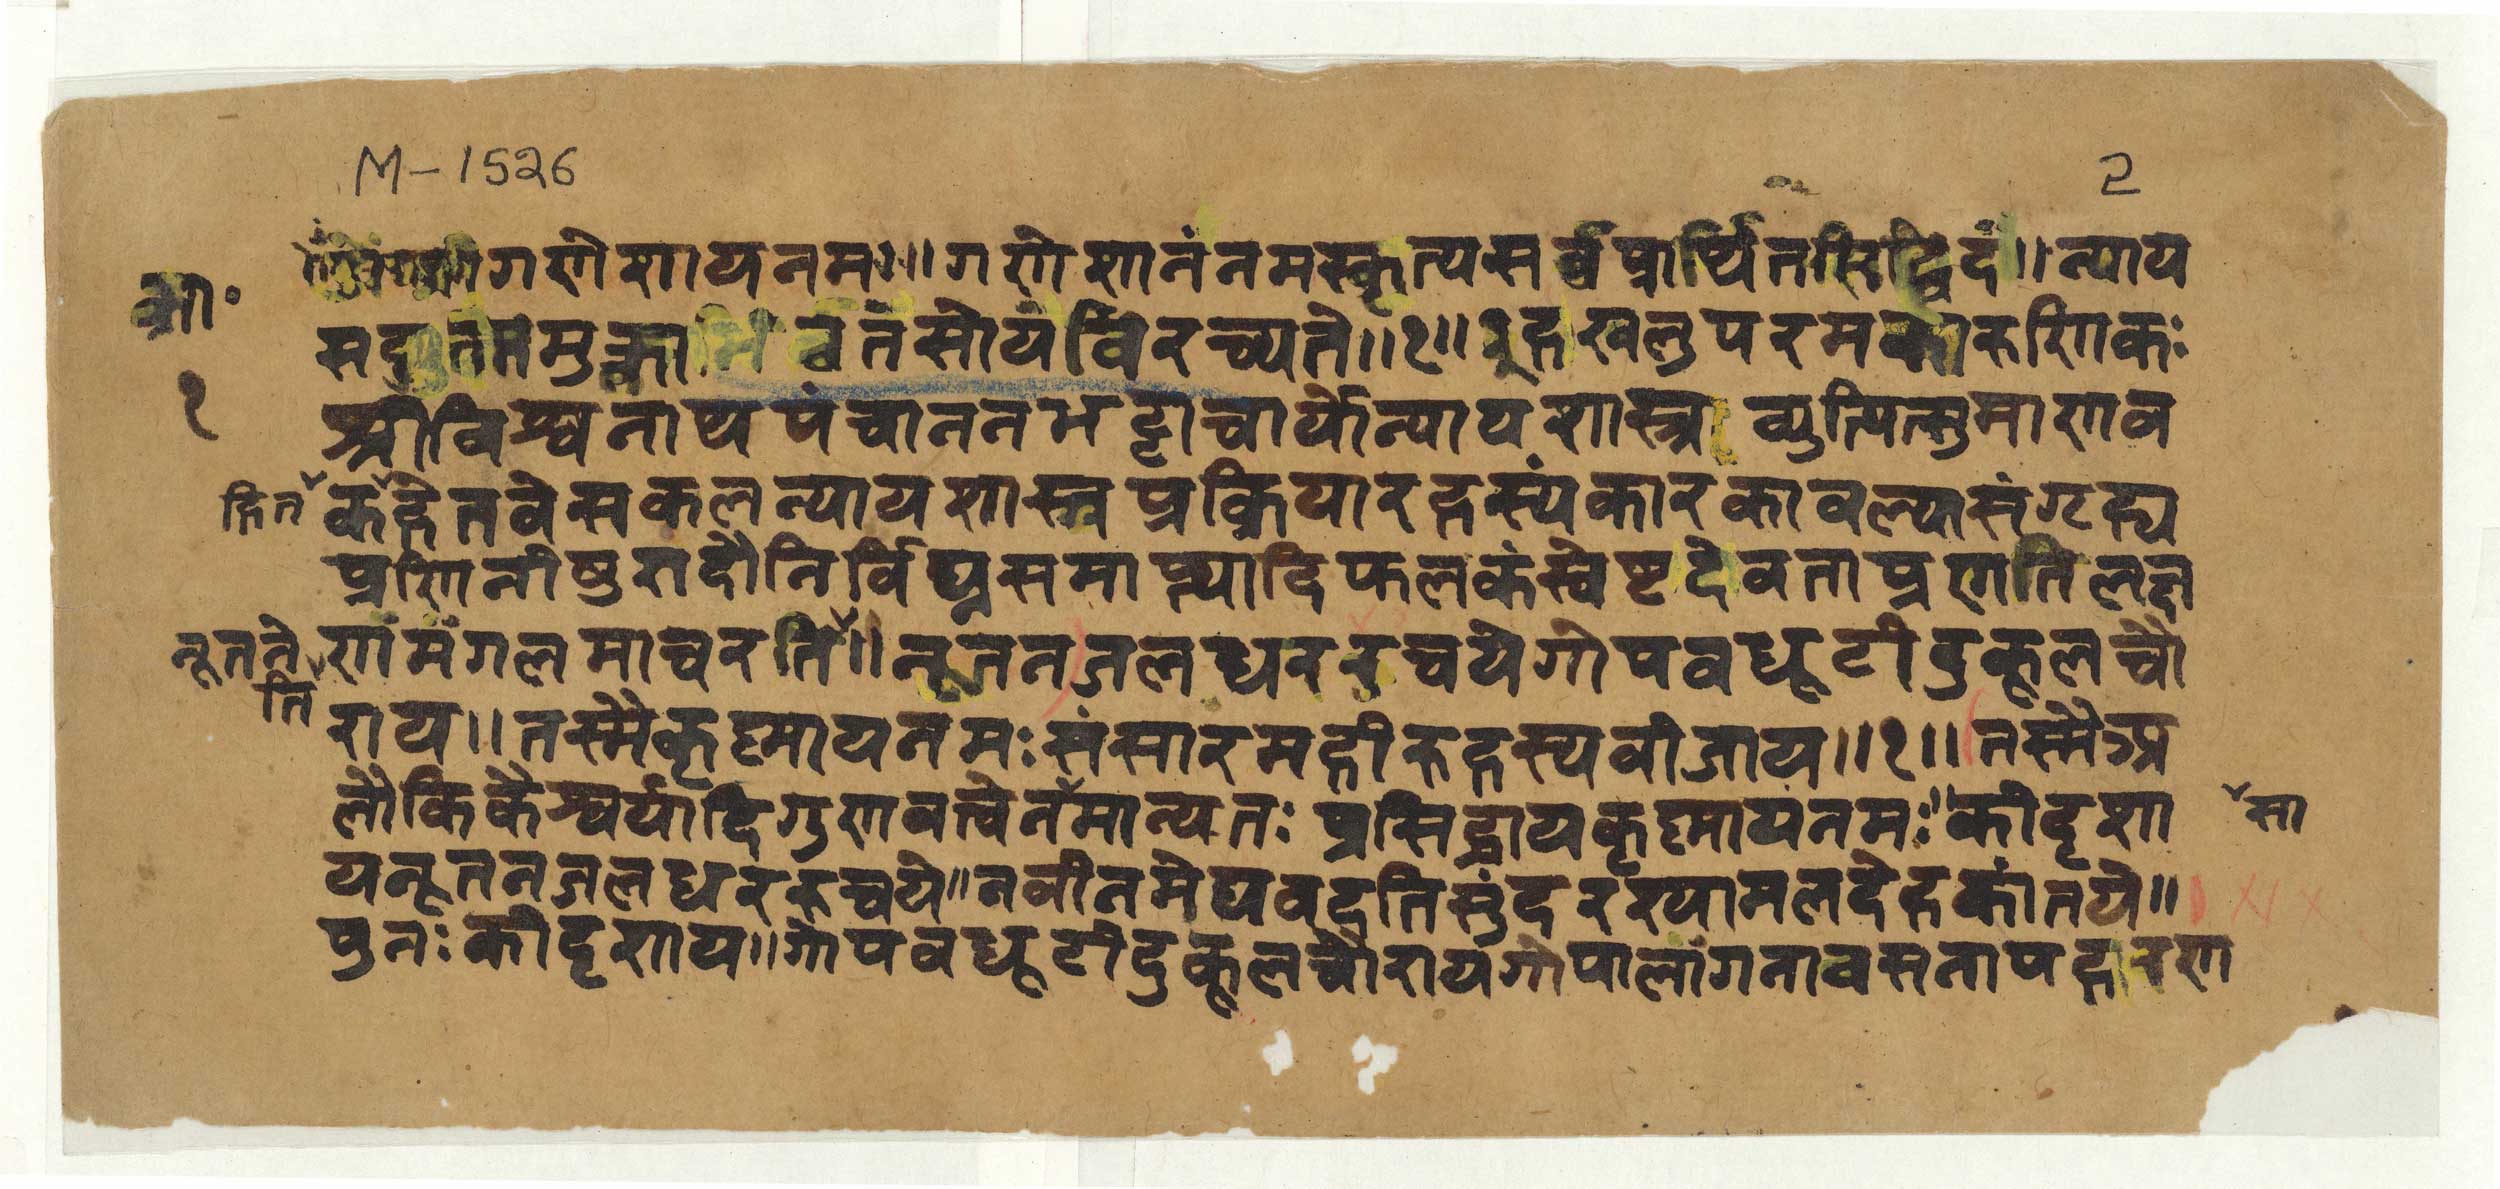 M-1526
2
श्रीगणेशायनमः॥ गणेशानंनमस्कृत्यसर्वप्रार्थितसिद्धिदं॥ न्याय
का॰
वतंसोयंविरच्यते॥१॥ इहखलुपरमकारुणिकः
१
श्रीविश्वनाथपंचाननभट्टाचार्योन्यायशास्त्र व्युत्पित्सुमाणव
हित
कहेतवेसकलन्यायशास्त्रप्रक्रियारहस्यंकारकावल्यासंगृह्य
प्रणिनीषुरादौनिर्विघ्नसमाप्त्यादिफलकंस्वेष्टदेवताप्रणतिलक्ष
नूतने
ति
णंमंगलमाचरति॥ नूतनजलधररुचयेगोपवधूटीदुकूलचौ
राय॥ तस्मैकृष्णायनमःसंसारमहीरुहस्यबीजाय॥१॥ तस्मैअ
लौकिकैश्वर्यादिगुणवत्वेनमान्यतः प्रसिद्धायकृष्णायनमः॥ कीदृशा
सा
यनूतनजलधररुचये॥ नवीनमेघवदतिसुंदरश्यामलदेहकांतये॥
पुनःकीदृशाय॥ गोपवधूटीदुकूलचौरायगोपालांगनावसनापहारण